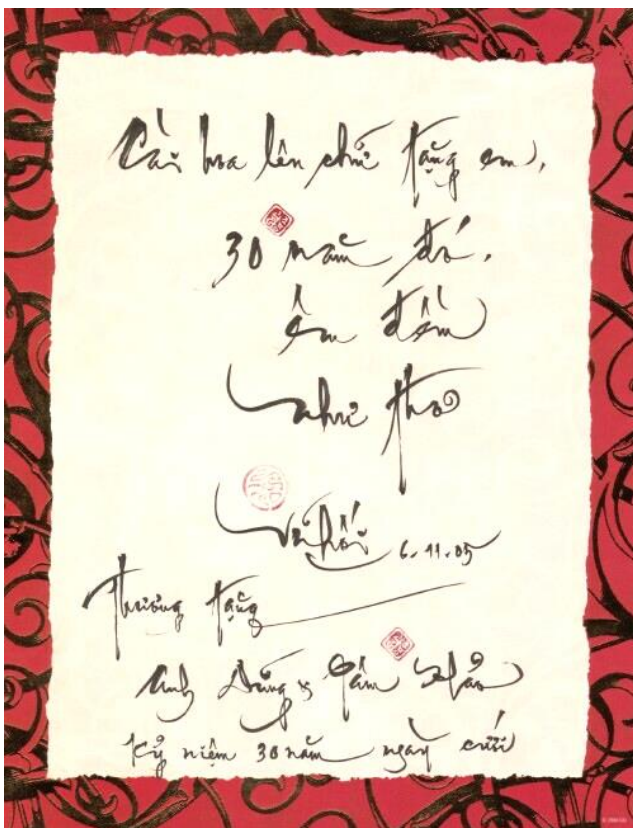 Cài hoa lên chữ tặng em,
30 năm đó,
êm đềm
như thơ
Vũ Hối 6.11.05
Thương tặng
Anh Dũng & Tâm Hảo
Kỷ niệm 30 năm ngày cưới